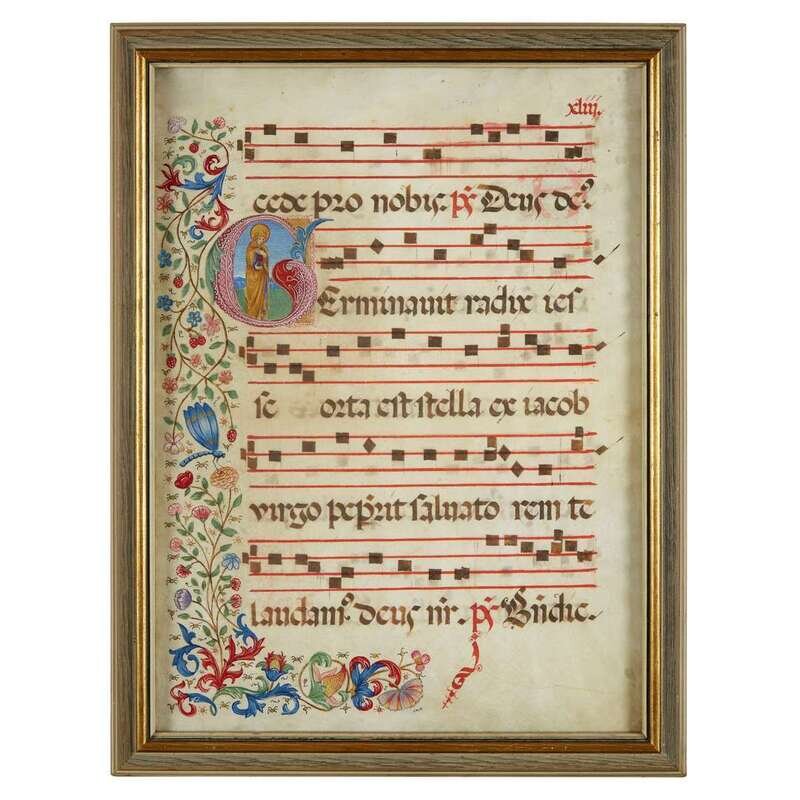 xliii.
cede pro nobis. ps̄. Deus de.
Germinauit radix ies
se orta est stella ex iacob
virgo peperit saluato rem te
laudam⁹. deus nr̄. ps̄. Bn̄dic.